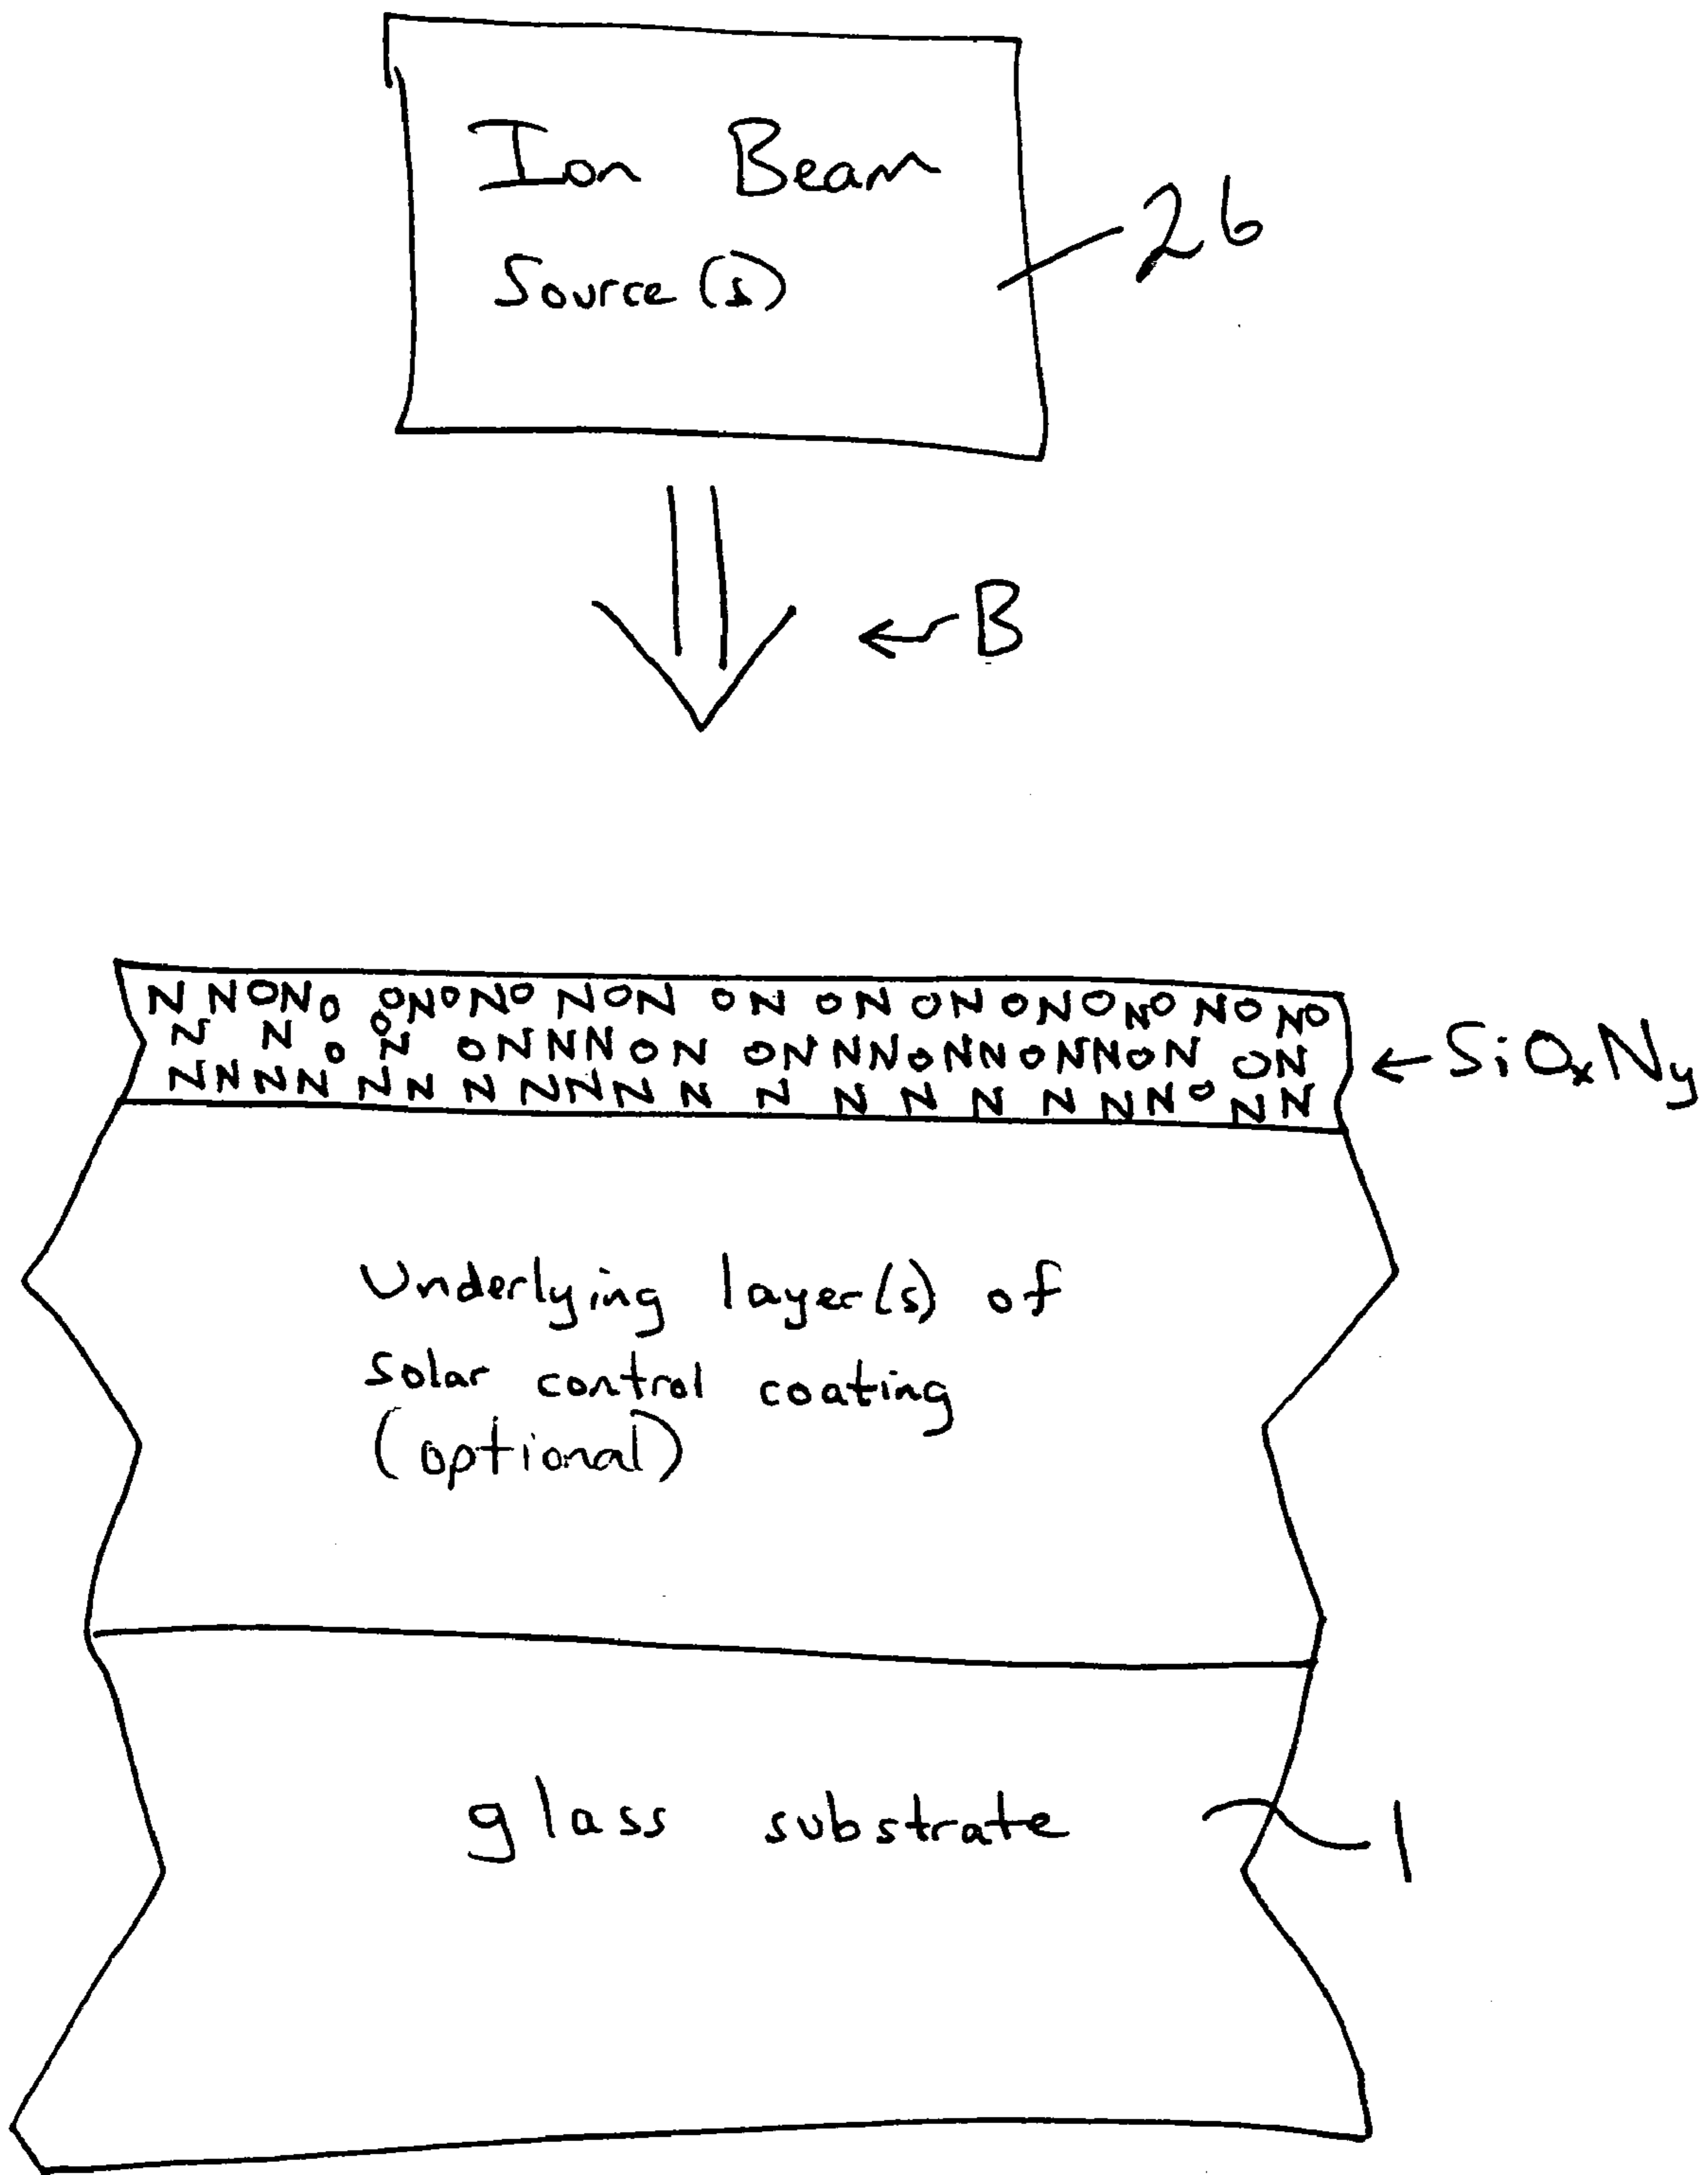 Ion Beam
Source(s)
26
B
N N O N O O N O N O N O N O N O N O N O N O N O N O N O
N N O N O O N N N O N O N N N O N N O N N O N O N
N N N N N N N N N N N N N N N N N N N O N N
SiOxNy
Underlying layer(s) of
solar control coating
(optional)
glass substrate
1